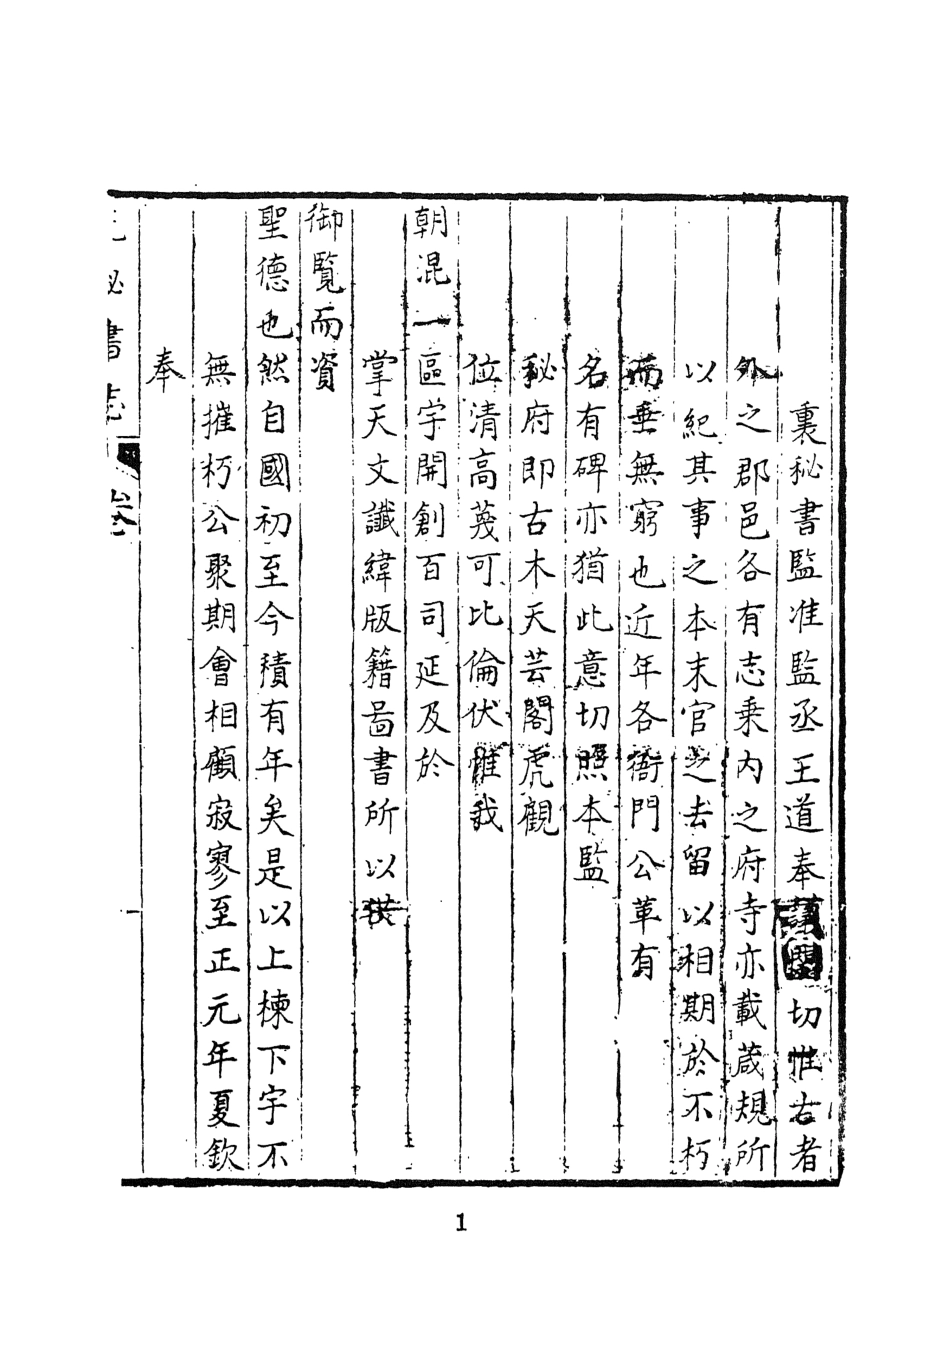 裏秘書監准監丞王道奉切惟古者
外之郡邑各有志乗内之府寺亦載蔵規所
以紀其事之本末官之去留以相期於不朽
而垂無窮也近年各衙門公革有
名有碑亦猶此意切照本監
秘府即古木天芸閣虎觀
位清高蔑可比倫伏惟我
朝混一區宇開創百司延及於
掌天文讖緯版籍啚書所以供
御覧而資
聖德也然自國初至今積有年矣是以上棟下宇不
無摧朽公聚期會相顧寂寥至正元年夏欽
奉
秘書志
卷
1